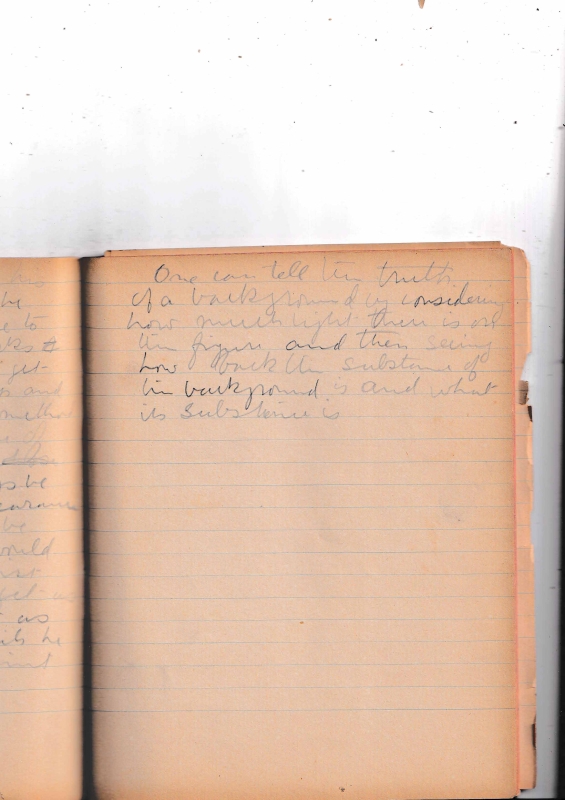 his
he
to
get
and
be
be
would
as
he
One can tell the truth
of a background by considering
how much light there is on
the figure and then seeing
how back the substance of
the background is and what
its substance is